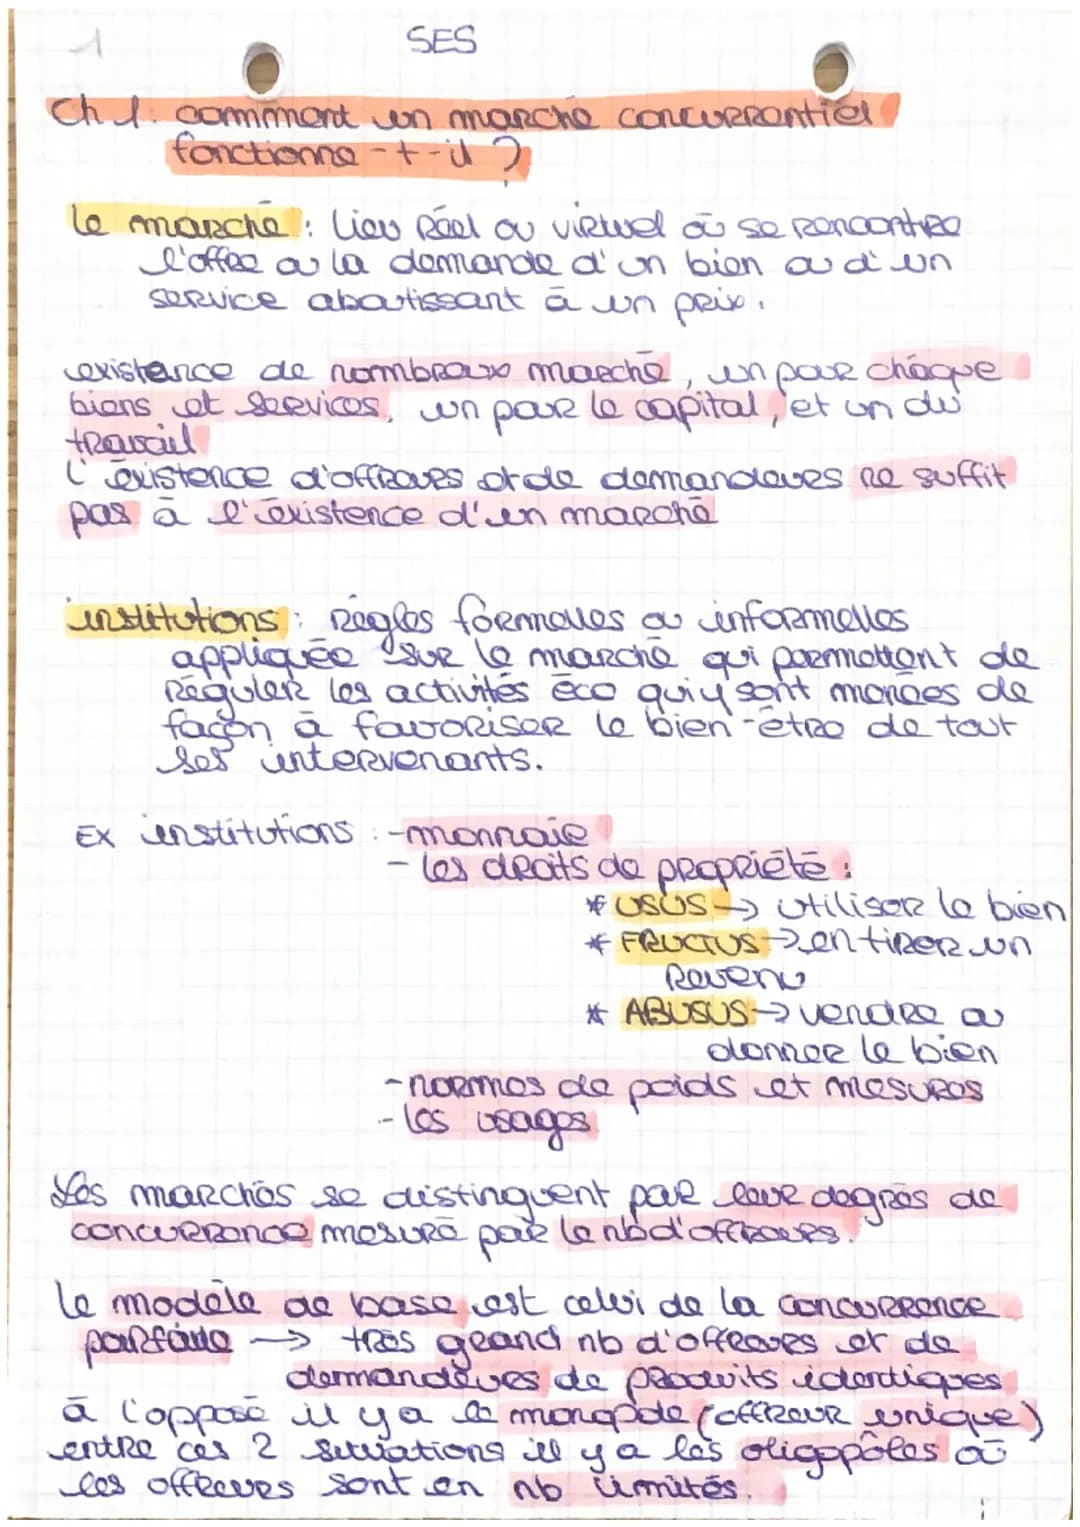 1
SES
Ch 1. comment un marché concurrentiel
fonctionne-t-il ?
le marché : Lieu Réel ou virtuel où se rencontre
l'offre ou la demande d'un bien ou d'un
service aboutissant à un prix.
existence de nombreux marché, un pour chaque
biens et services, un pour le capital, et un du
travail
L'existence d'offreurs et de demandeurs ne suffit
pas à l'existence d'un marché
institutions : Règles formelles ou informelles
appliquée sur le marché qui permettent de
Réguler les activités éco qui y sont menées de
façon à favoriser le bien-être de tout
ses intervenants.
Ex institutions : - monnaie
- les droits de propriété :
* USUS → utiliser le bien
* FRUCTUS → en tirer un
Revenu
* ABUSUS → vendre ou
donner le bien
- normes de poids et mesures
- les usages
Les marchés se distinguent par leur degrés de
concurrence mesuré par le nb d'offreurs.
le modèle de base est celui de la concurrence
parfaite → très grand nb d'offreurs et de
demandeurs de produits identiques
à l'opposé il y a le monopole (offreur unique)
entre ces 2 situations il y a les oligopôles où
les offreurs sont en nb limités.